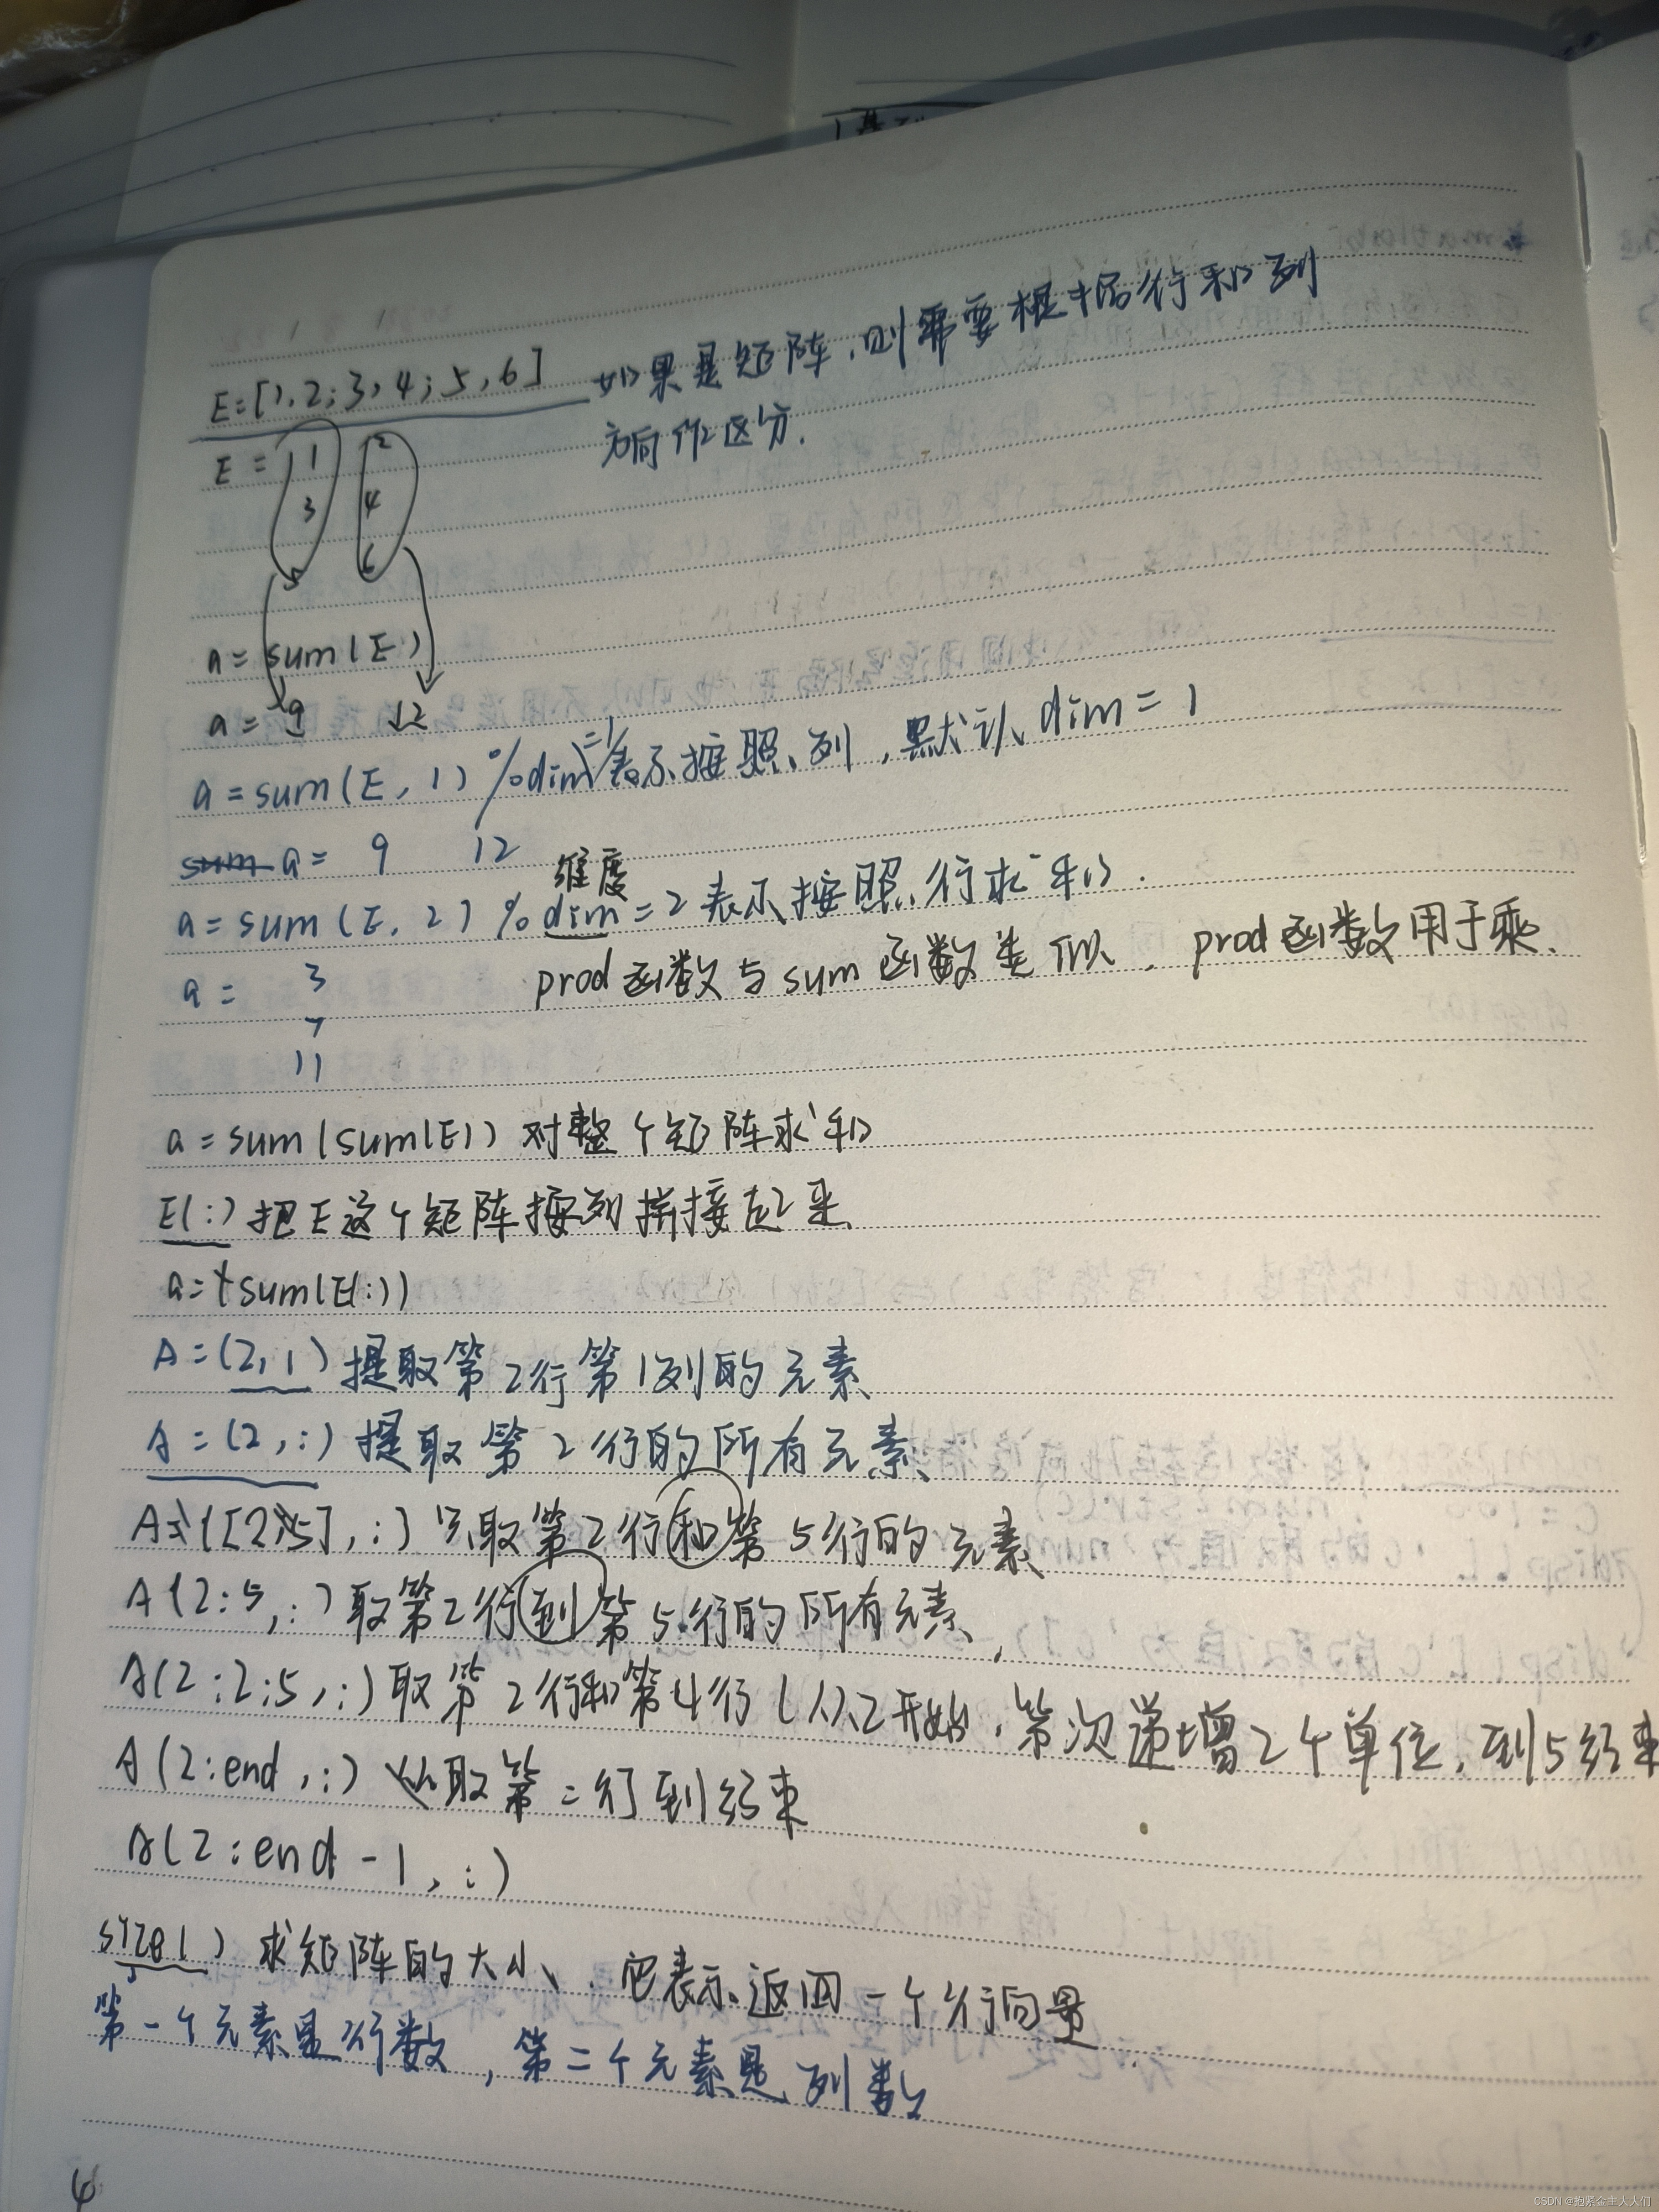 E=[1,2;3,4;5,6] 如果是矩阵,则需要根据行和列
方向作区分.
E = 1 2
3 4
5 6
a = sum(E)
a = 9 12
a = sum(E, 1) %dim=1表示按照列,默认dim = 1
a = 9 12
维度
a = sum(E, 2) %dim=2表示按照行求和.
prod函数与sum函数类似,prod函数用于乘.
a = 3
7
11
a = sum(sum(E)) 对整个矩阵求和
E(:)把E这个矩阵按列拼接起来
a= sum(E(:))
A=(2,1)提取第2行第1列的元素
A=(2,:)提取第2行的所有元素
A([2,5],:)只取第2行和第5行的元素
A(2:5,:)取第2行到第5行的所有元素
A(2:2:5,:)取第2行和第4行(从2开始,等次递增2个单位,到5结束
A(2:end,:)取第二行到结束
A(2:end-1,:)
size()求矩阵的大小,它表示返回一个行向量
第一个元素是行数,第二个元素是列数
4
CSDN @抱紧金主大大们